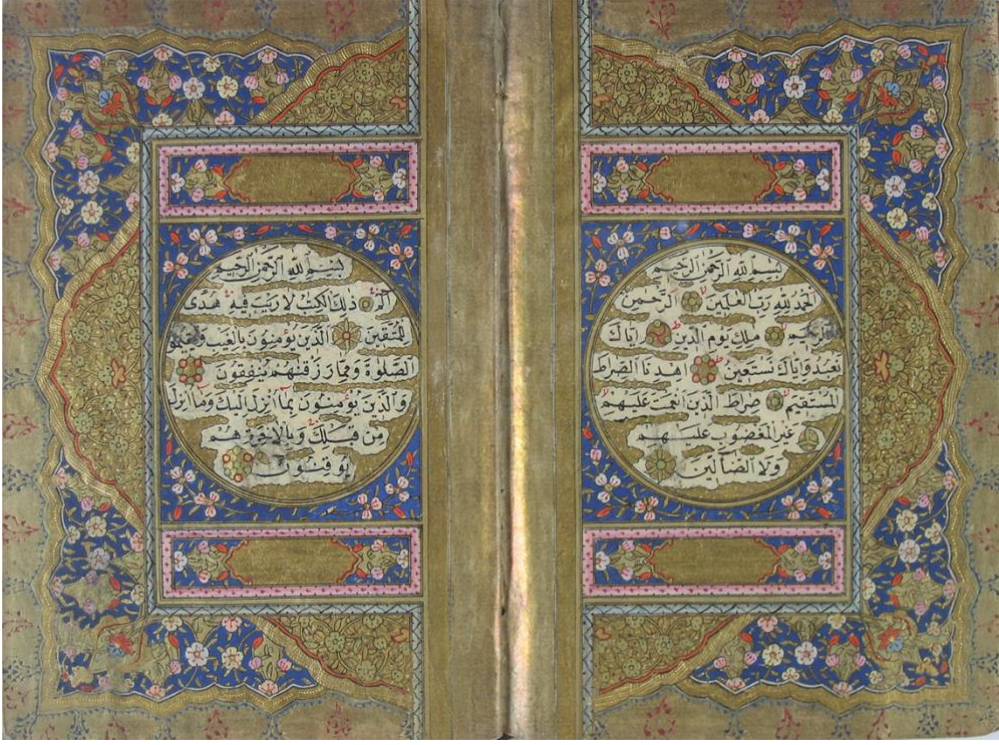 بسم الله الرحمن الرحيم
الحمد لله رب العلمين الرحمن
الرحيم ملك يوم الدين اياك
نعبد واياك نستعين اهدنا الصراط
المستقيم صراط الذين انعمت عليهم
غير المغضوب عليهم
ولا الضالين
بسم الله الرحمن الرحيم
الم ذلك الكتب لا ريب فيه هدى
للمتقين الذين يؤمنون بالغيب ويقيمون
الصلوة ومما رزقنهم ينفقون
والذين يؤمنون بما انزل اليك وما انزل
من قبلك وبالاخرة هم
يوقنون